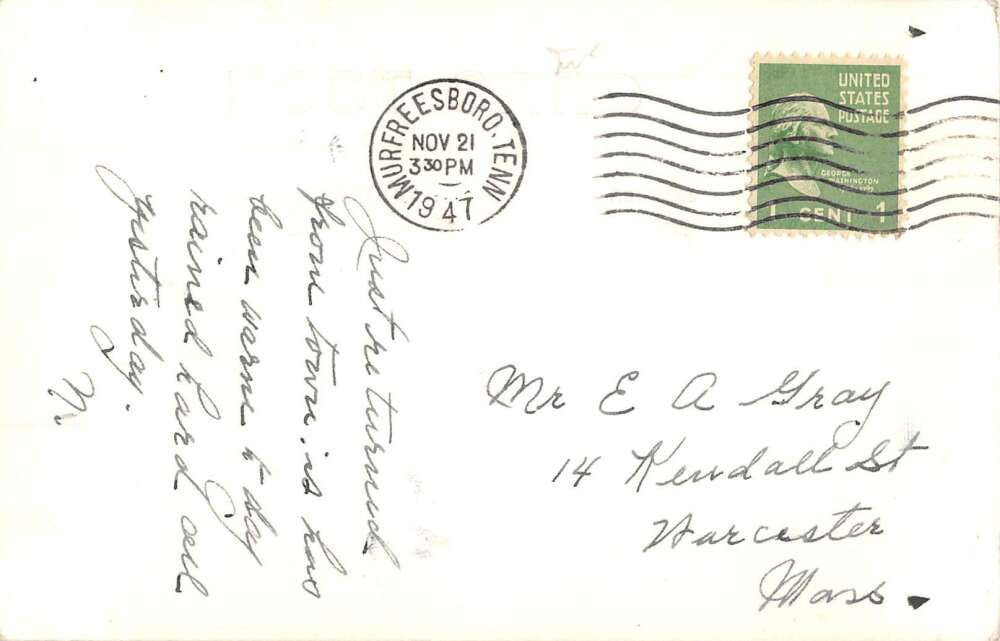 MURFREESBORO, TENN
NOV 21
3 30 PM
1947
UNITED
STATES
POSTAGE
GEORGE
WASHINGTON
1 CENT 1
Just returned
from town. is has
been warm to day
rained hard all
yesterday.
N.
Mr E A Gray
14 Kendall St
Worcester
Mass